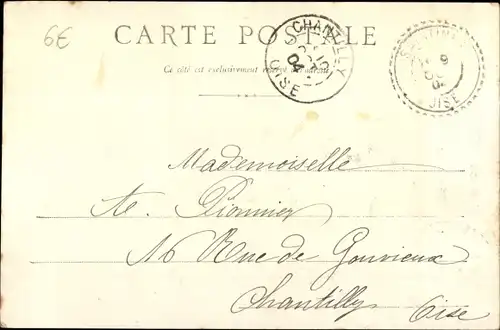 6€
CARTE POSTALE
Ce côté est exclusivement réservé
CHANTILLY
04
OISE
9
04
OISE
Mademoiselle
Te. Pionnier
16 Rue de Gouvieux
Chantilly Oise